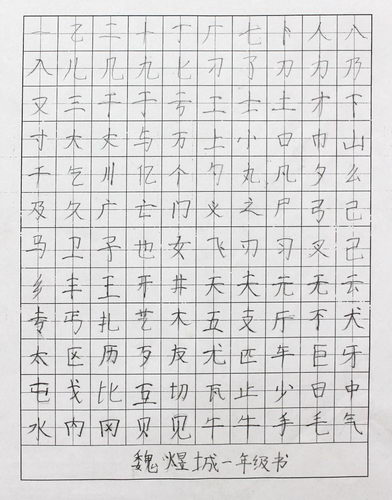 一乙二十丁厂七卜人八
入儿几九匕刁了刀力乃
又三干于亏工士土才下
寸大丈与万上小口巾山
千乞川亿个勺丸凡夕么
及久广亡门义之尸弓己
马卫子也女飞刃习叉己
乡丰王开井天夫元无云
专丐扎艺木五支斤不犬
太区历歹友尤匹车巨牙
屯戈比互切瓦止少日中
水内冈贝见牛牛手毛气
魏煜城一年级书